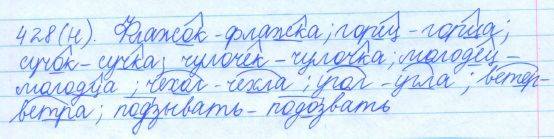 428(н). Флажок - флажка; горец - горца;
сучок - сучка; чулочек - чулочка; молодец -
молодца; чехол - чехла; угол - угла; ветер-
ветра; подзывать - подозвать